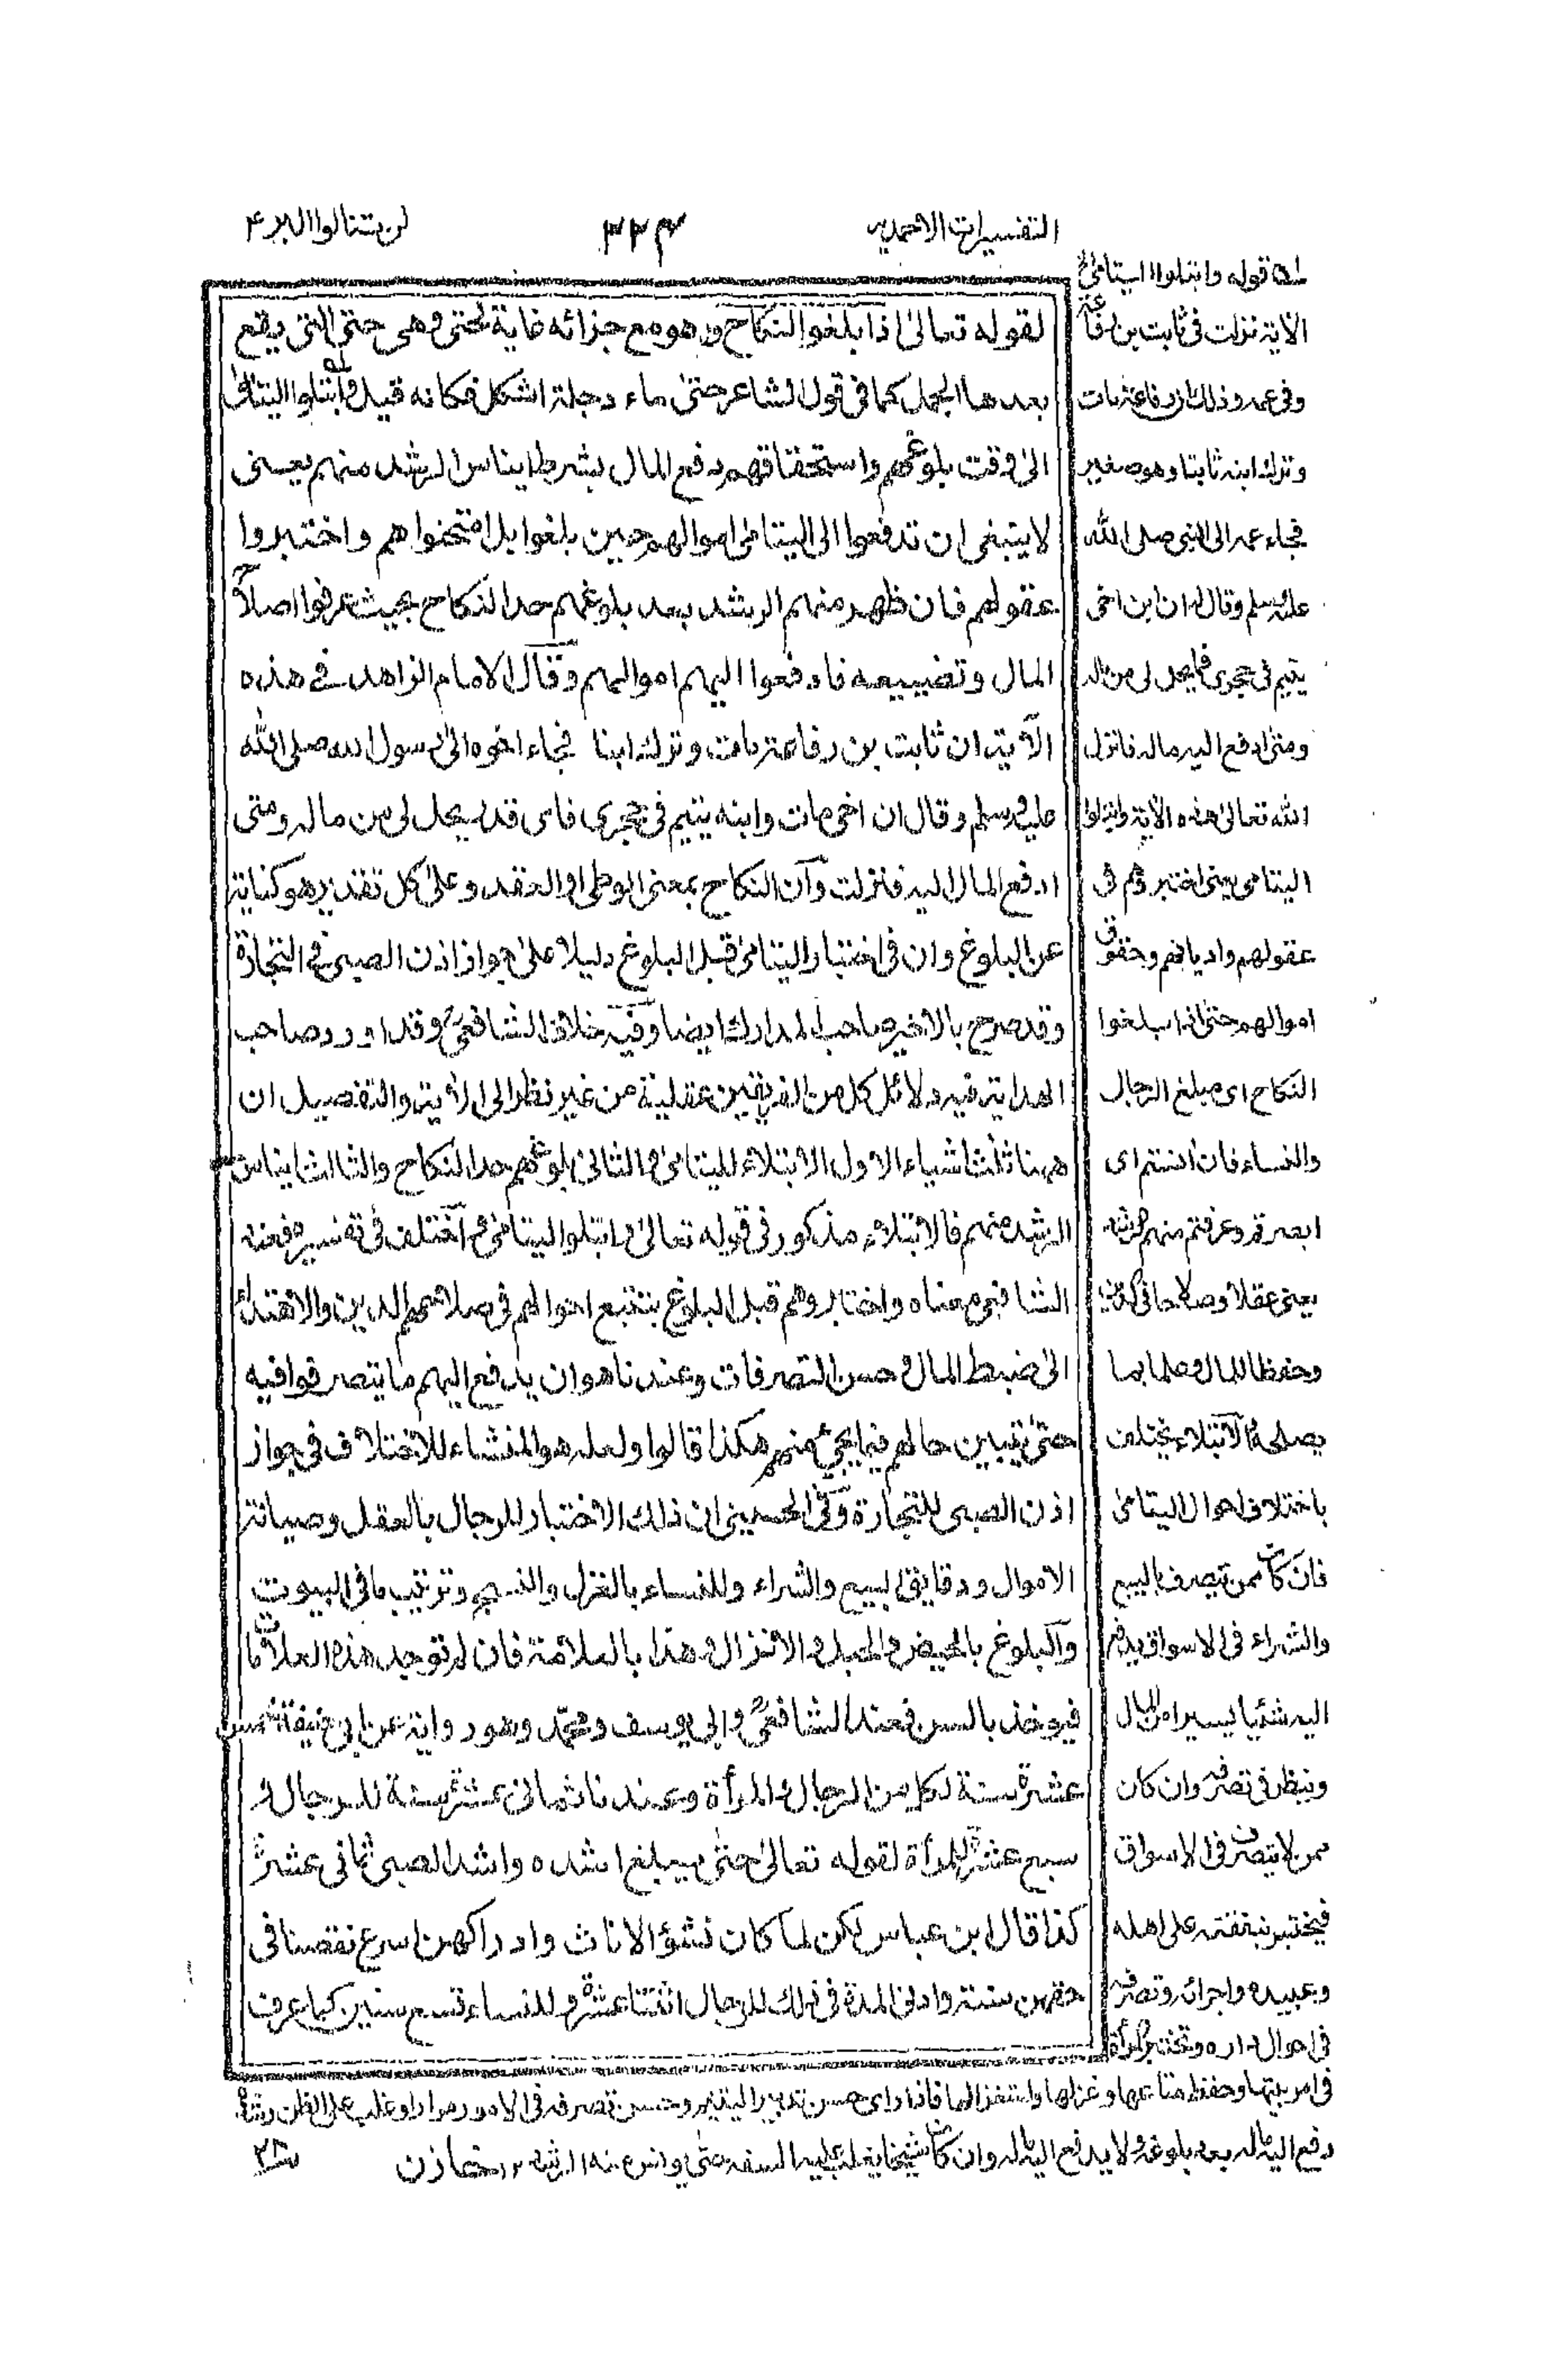 التفسيرات الاحمديه ٢٢٤ لن تنالوا البر ٤
لقوله تعالىٰ اذا بلغوا النكاح وهو مع جزائه غاية لحتى وهى حتى التى يقع
بعدها الجمل كما فى قول الشاعر حتىٰ ماء دجلة اشكل فكانه قيل وابتلوا اليتامىٰ
الىٰ وقت بلوغهم واستحقاقهم دفع المال بشرط ايناس الرشد منهم يعنى
لا ينبغى ان تدفعوا الى اليتامىٰ اموالهم حين بلغوا بل امتحنواهم واختبروا
عقولهم فان ظهر منهم الرشد بعد بلوغهم حد النكاح بحيث عرفوا اصلاح
المال وتضييعه فادفعوا اليهم اموالهم وقال الامام الزاهد فى هذه
الآية ان ثابت بن رفاعة مات وترك ابنا فجاء اخوه الىٰ رسول الله صلى الله
عليه وسلم وقال ان اخى مات وابنه يتيم فى حجرى فاى قدر يحل لى من ماله ومتى
ادفع المال اليه فنزلت وآن النكاح بمعنى الوطى او العقد وعلىٰ كل تقدير هو كناية
عن البلوغ وان فى اختبار اليتامىٰ قبل البلوغ دليلا علىٰ جواز اذن الصبى فى التجارة
وقد صرح بالاخير صاحب المدارك ايضا وفيه خلاف الشافعىؒ وقد اورد صاحب
الهداية فيه دلائل كل من الفريقين عقلية من غير نظر الى الآية والتفصيل ان
ههنا ثلٰثة اشياء الاول الابتلاء لليتامىٰ والثانى بلوغهم حد النكاح والثالث ايناس
الرشد منهم فالابتلاء مذكور فى قوله تعالىٰ وابتلوا اليتامىٰ واختلف فى تفسيره فعند
الشافعى معناه واختبروهم قبل البلوغ بتتبع احوالهم فى صلاحهم الدين والاهتداء
الىٰ ضبط المال وحسن التصرفات وعندنا هو ان يدفع اليهم ما يتصرفوا فيه
حتىٰ تتبين حالهم فيما يجئ منهم هكذا قالوا ولعله هو المنشاء للاختلاف فى جواز
اذن الصبى للتجارة وفى الحسينى ان ذلك الاختبار للرجال بالعقل وصيانة
الاموال ودقايق البيع والشراء وللنساء بالغزل والنسج وترتيب ما فى البيوت
والبلوغ بالحيض والحبل والانزال وهذا بالعلامة فان لم توجد هذه العلامات
فيوخذ بالسن فعند الشافعىؒ وابى يوسف ومحمّد وهو رواية عن ابى حنيفة خمس
عشرة سنة لكل من الرجال والمرأة وعندنا ثمانى عشرة سنة للرجال و
سبع عشرة للمرأة لقوله تعالىٰ حتىٰ يبلغ اشده واشد الصبى ثمانى عشرة
كذا قال ابن عباس لكن لما كان نشؤ الاناث وادراكهن اسرع نقصنا فى
حقهن سنة وادنى المدة فى ذلك للرجال اثنتا عشرة وللنساء تسع سنين كما عرف
له قوله وابتلوا اليتامىٰ
الآية نزلت فى ثابت بن رفاعة
وفى عمه وذلك ان رفاعة مات
وترك ابنه ثابتا وهو صغير
فجاء عمه الى النبى صلى الله
عليه وسلم وقال له ان ابن اخى
يتيم فى حجرى فما يحل لى من ماله
ومتى ادفع اليه ماله فانزل
الله تعالىٰ هذه الآية وابتلوا
اليتامى يعنى اختبروهم فى
عقولهم واديانهم وحقوق
اموالهم حتىٰ اذا بلغوا
النكاح اى مبلغ الرجال
والنساء فان آنستم اى
ابصرتم وعرفتم منهم رشدا
يعنى عقلا وصلاحا فى
وحفظا للمال وعلما بما
يصلحه والابتلاء يختلف
باختلاف احوال اليتامىٰ
فان كان ممن يتصرف بالبيع
والشراء فى الاسواق يدفع
اليه شئيا يسيرا من المال
وينظر فى تصرفه وان كان
ممن لا يتصرف فى الاسواق
فيختبر بنفقته على اهله
وعبيده واجرائه وتصرفه
فى احوال داره وتختبر المرأة
فى امر بيتها وحفظ متاعها وغزلها واستغزالها فاذا راى حسن تدبير اليتيم وحسن تصرفه فى الامور مرارا وغلب على الظن رشده
دفع اليه ماله بعد بلوغه ولا يدفع اليه ماله وان كان شيخا يغلب عليه السفه حتىٰ يونس منه الرشد ١٢ خازن